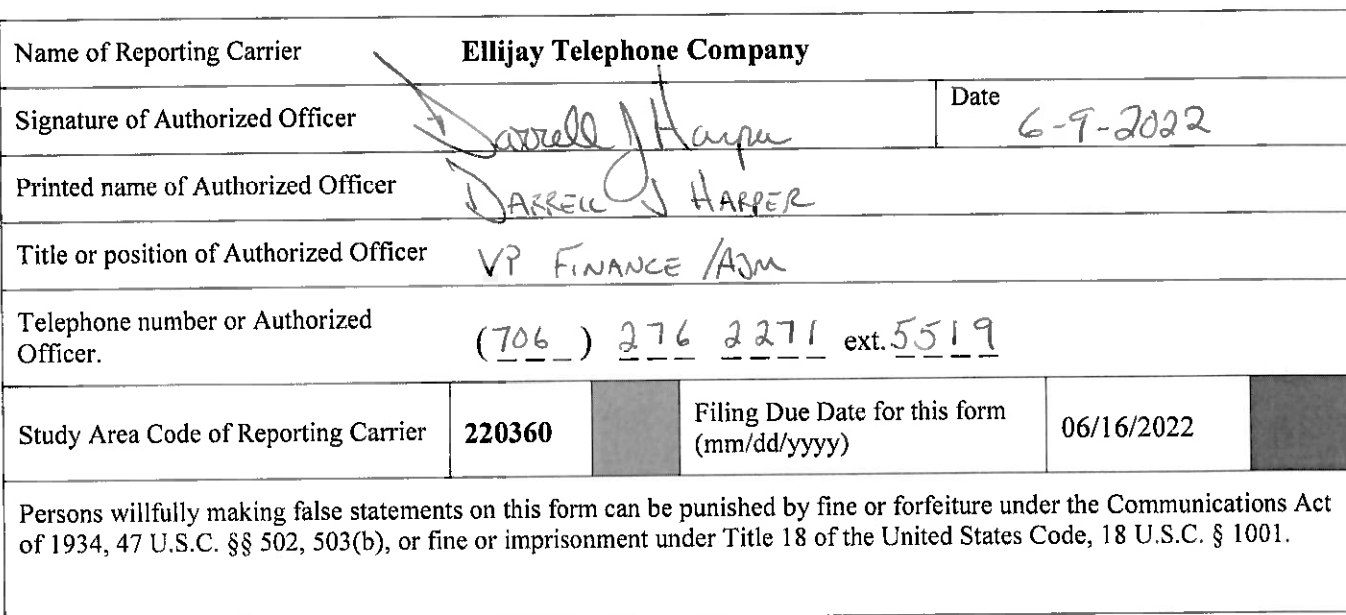 Name of Reporting Carrier Ellijay Telephone Company
Signature of Authorized Officer Darrell J Harper Date 6-9-2022
Printed name of Authorized Officer DARRELL J HARPER
Title or position of Authorized Officer VP FINANCE /ADM
Telephone number or Authorized
Officer. (706) 276 2271 ext. 5519
Study Area Code of Reporting Carrier 220360 Filing Due Date for this form
(mm/dd/yyyy) 06/16/2022
Persons willfully making false statements on this form can be punished by fine or forfeiture under the Communications Act
of 1934, 47 U.S.C. §§ 502, 503(b), or fine or imprisonment under Title 18 of the United States Code, 18 U.S.C. § 1001.